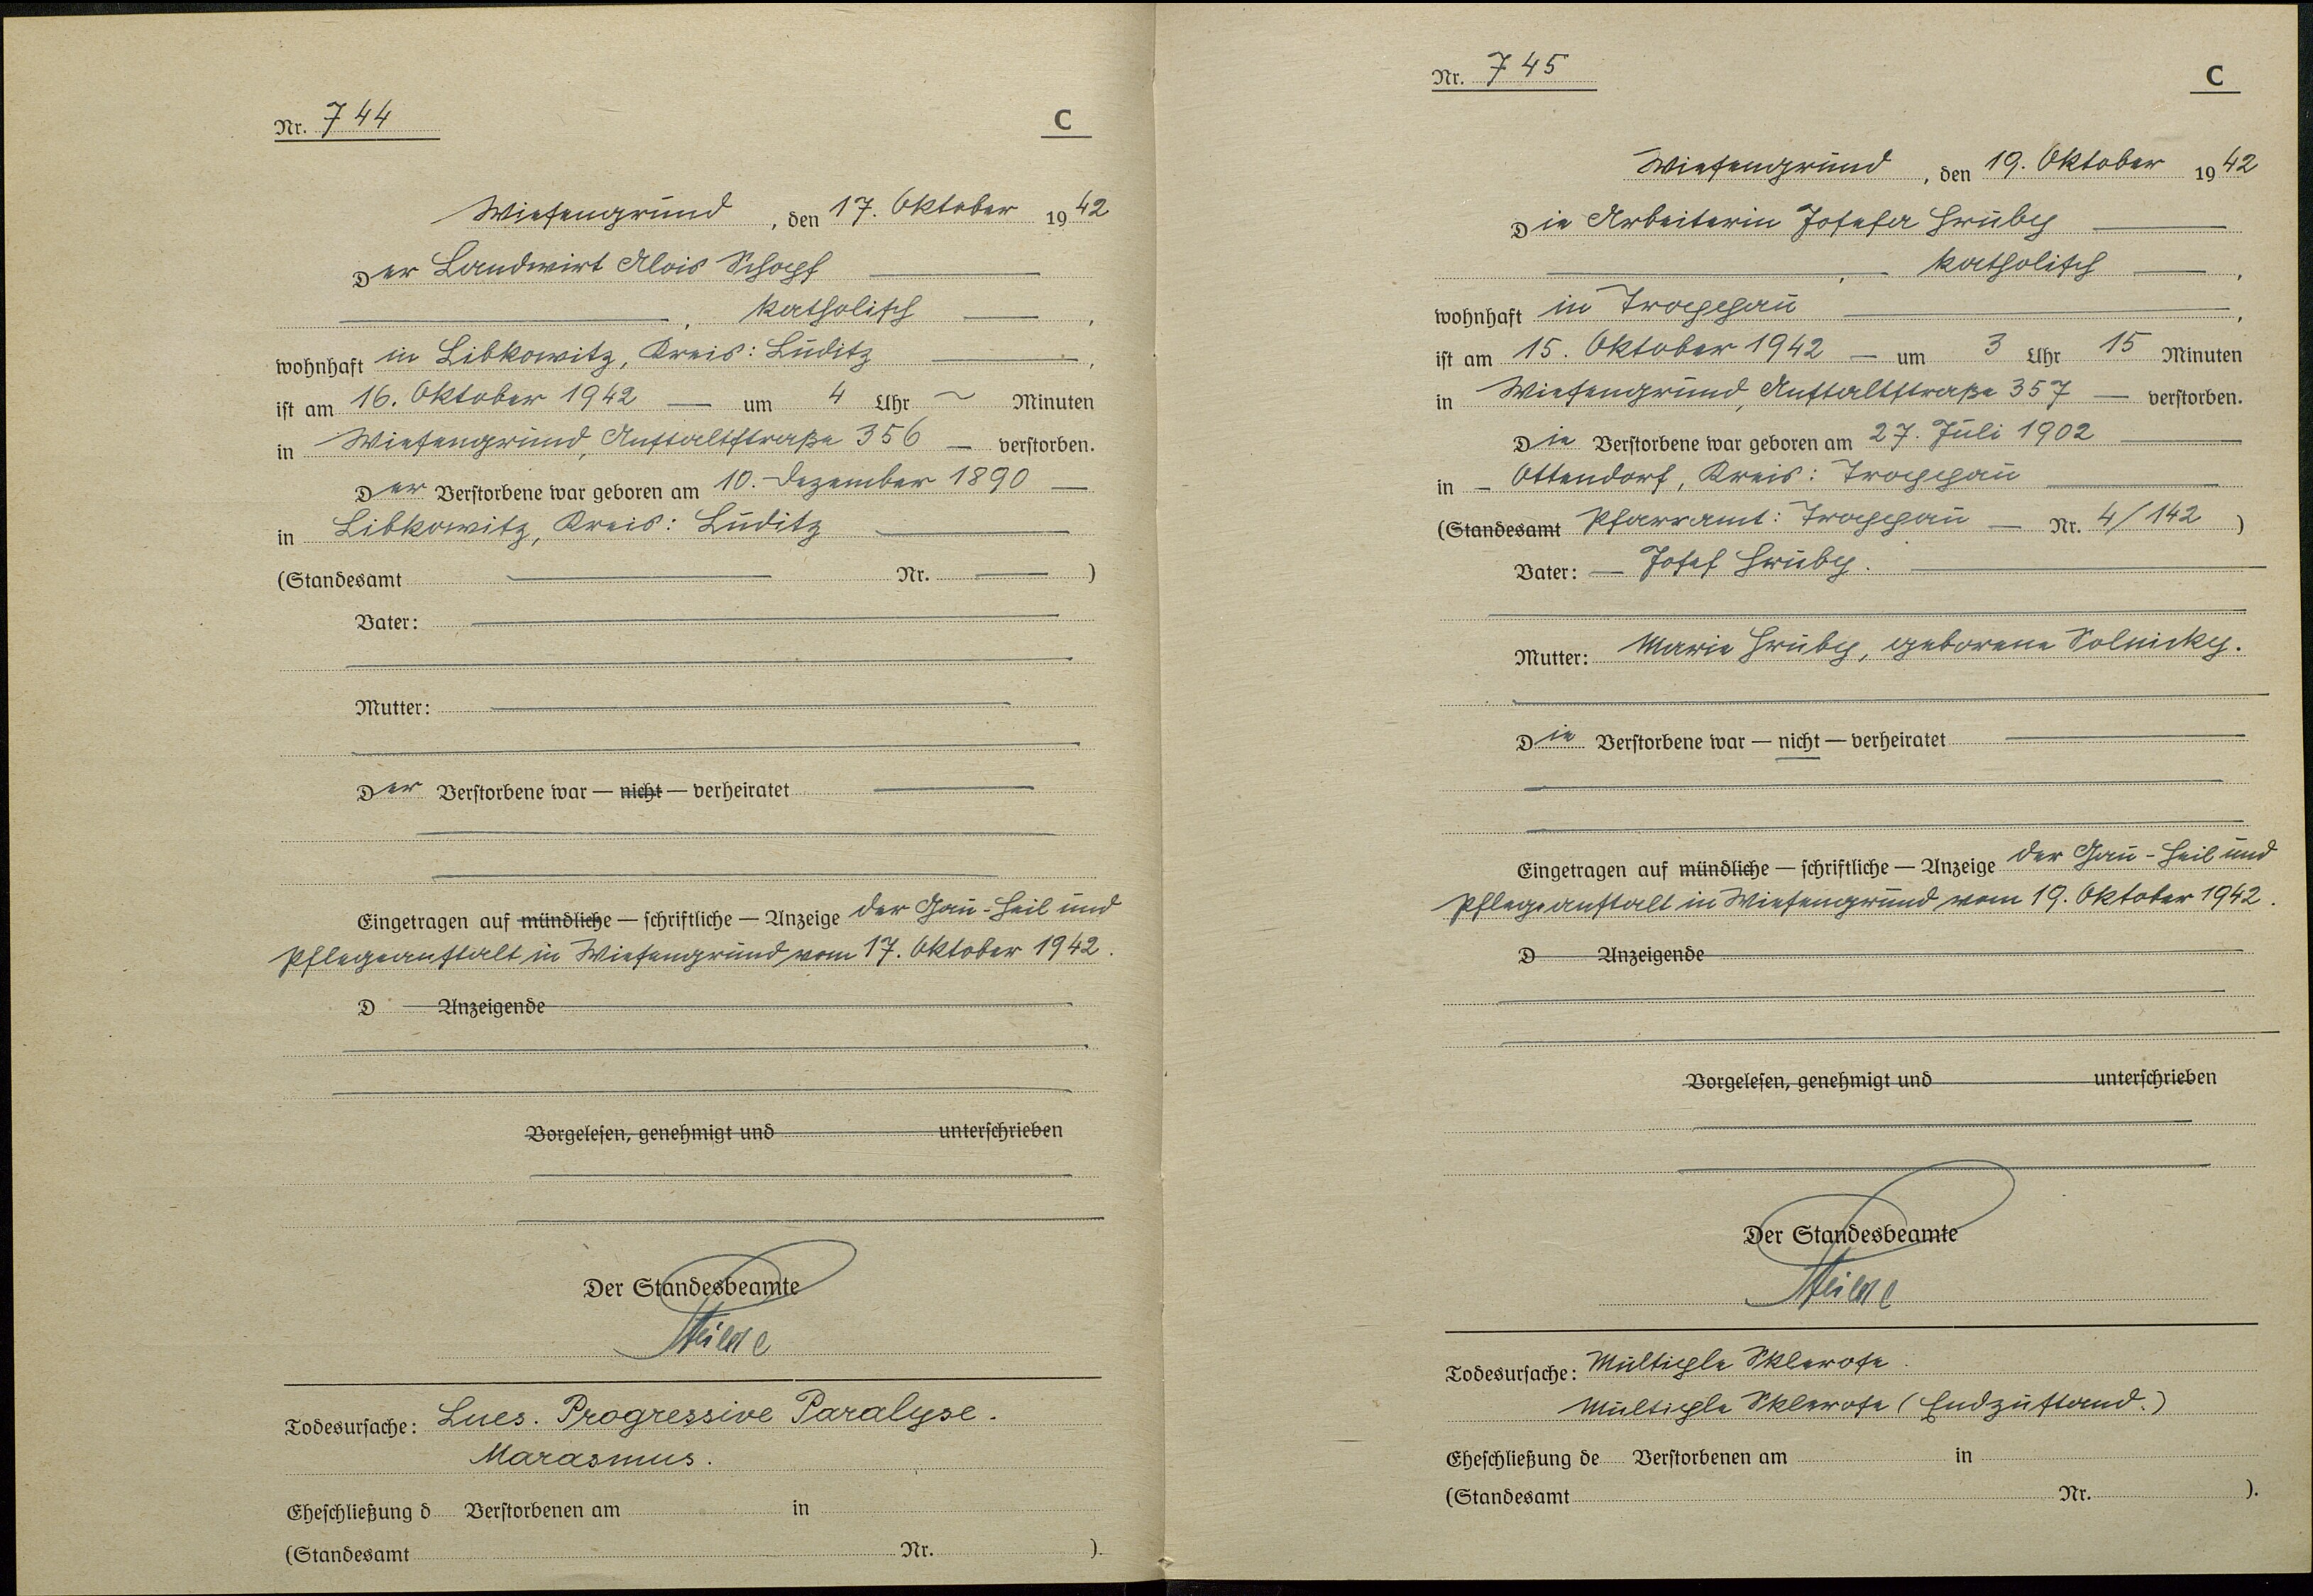 Nr. 744
C
Wiesengrund, den 17. Oktober 1942
Der Landwirt Alois Schopf
katholisch,
wohnhaft in Libkowitz, Kreis: Luditz,
ist am 16. Oktober 1942 — um 4 Uhr ~ Minuten
in Wiesengrund, Anstaltstraße 356 — verstorben.
Der Verstorbene war geboren am 10. Dezember 1890 —
in Libkowitz, Kreis: Luditz
(Standesamt Nr. )
Vater:
Mutter:
Der Verstorbene war — nicht — verheiratet
Eingetragen auf mündliche — schriftliche — Anzeige der Gau-Heil und
Pflegeanstalt in Wiesengrund vom 17. Oktober 1942.
D Anzeigende
Vorgelesen, genehmigt und unterschrieben
Der Standesbeamte
Todesursache: Lues. Progressive Paralyse.
Marasmus.
Eheschließung d Verstorbenen am in
(Standesamt Nr. ).
Nr. 745
C
Wiesengrund, den 19. Oktober 1942
Die Arbeiterin Josefa Hruby
, katholisch —,
wohnhaft in Troppau,
ist am 15. Oktober 1942 — um 3 Uhr 15 Minuten
in Wiesengrund, Anstaltstraße 357 — verstorben.
Die Verstorbene war geboren am 27. Juli 1902
in — Ottendorf, Kreis: Troppau
(Standesamt Pfarramt: Troppau — Nr. 4/142 )
Vater: — Josef Hruby.
Mutter: Marie Hruby, geborene Solnicky.
Die Verstorbene war — nicht — verheiratet
Eingetragen auf mündliche — schriftliche — Anzeige der Gau-Heil und
Pflegeanstalt in Wiesengrund vom 19. Oktober 1942.
D Anzeigende
Vorgelesen, genehmigt und unterschrieben
Der Standesbeamte
Todesursache: Multiple Sklerose.
Multiple Sklerose (Endzustand.)
Eheschließung de Verstorbenen am in
(Standesamt Nr. ).